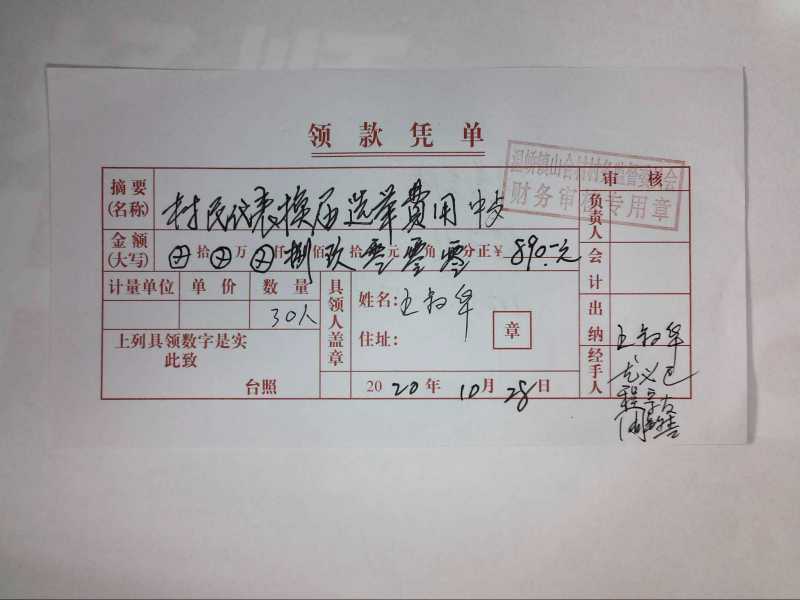 领款凭单
温峤镇山会村村务监督委员会
财务审核专用章
摘要(名称) 村民代表换届选举费用
审核
负责人
金额(大写) ⊕拾⊕万⊕仟捌佰玖拾零元零角零分正¥890.-元
会计
计量单位 单价 数量
30人
具领人盖章
姓名:王
住址:
章
出纳 王
上列具领数字是实
此致
台照
2020年10月28日
经手人